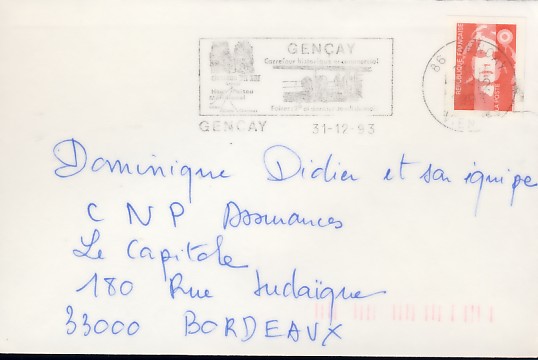 GENÇAY
Carrefour historique et commercial
GENCAY
31-12-93
86
RÉPUBLIQUE FRANÇAISE
LA POSTE
Dominique Didier et son équipe
CNP Assurances
Le Capitole
180 Rue Judaïque
33000 BORDEAUX